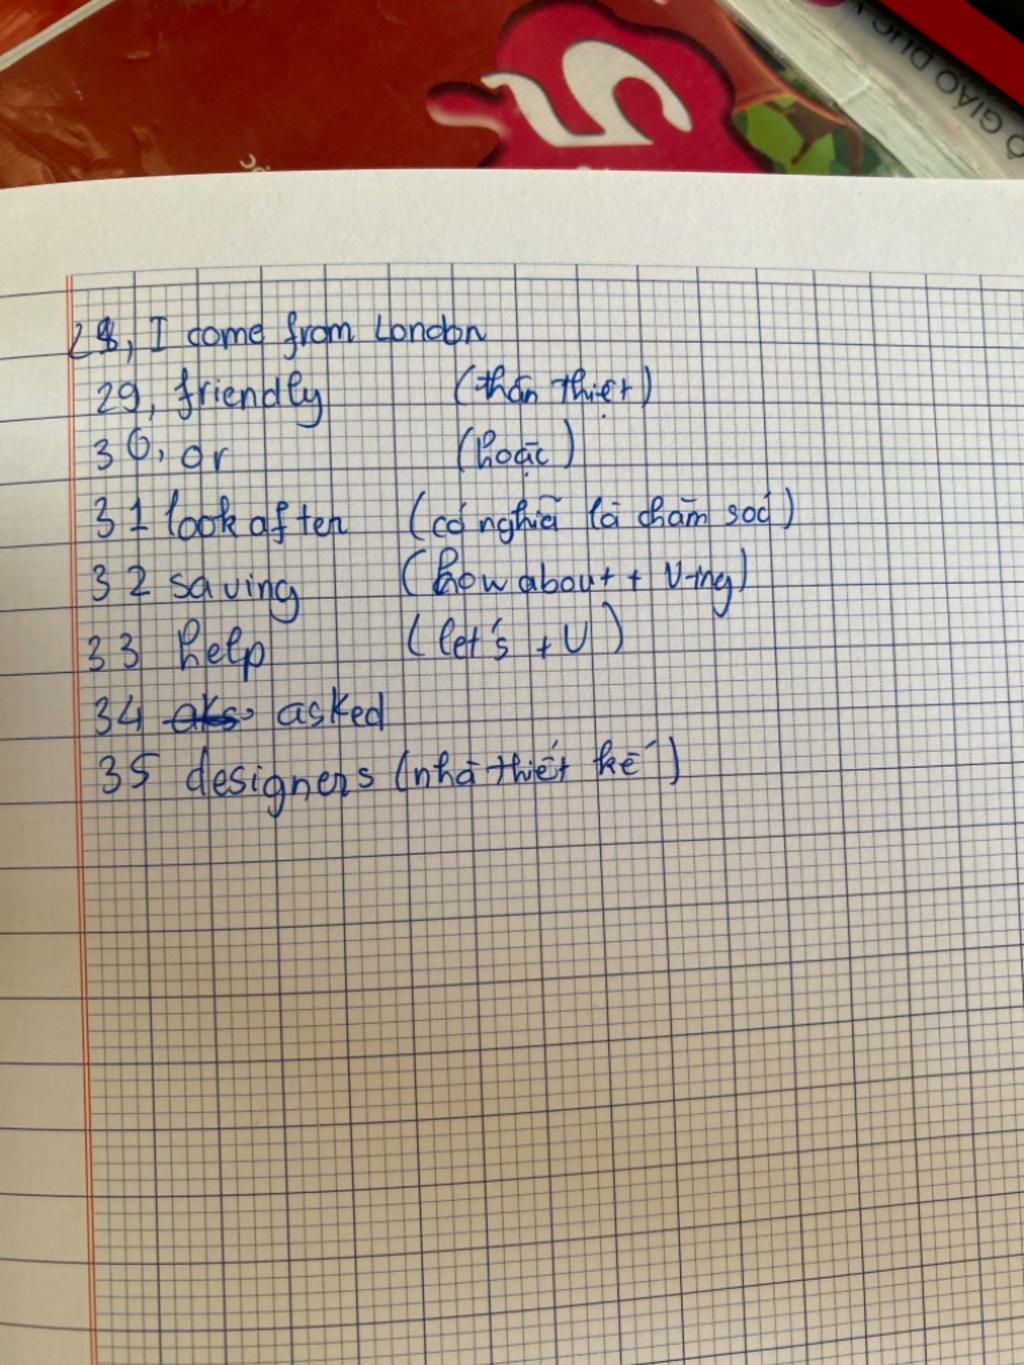 Ộ GIÁO DỤC V
28, I come from London
29, friendly (thân thiệt)
30, or (hoặc)
31 look after (có nghĩa là chăm soć)
32 saving (how about + V-ing)
33 help (let's + V)
34 aks asked
35 designers (nhà thiết kế)